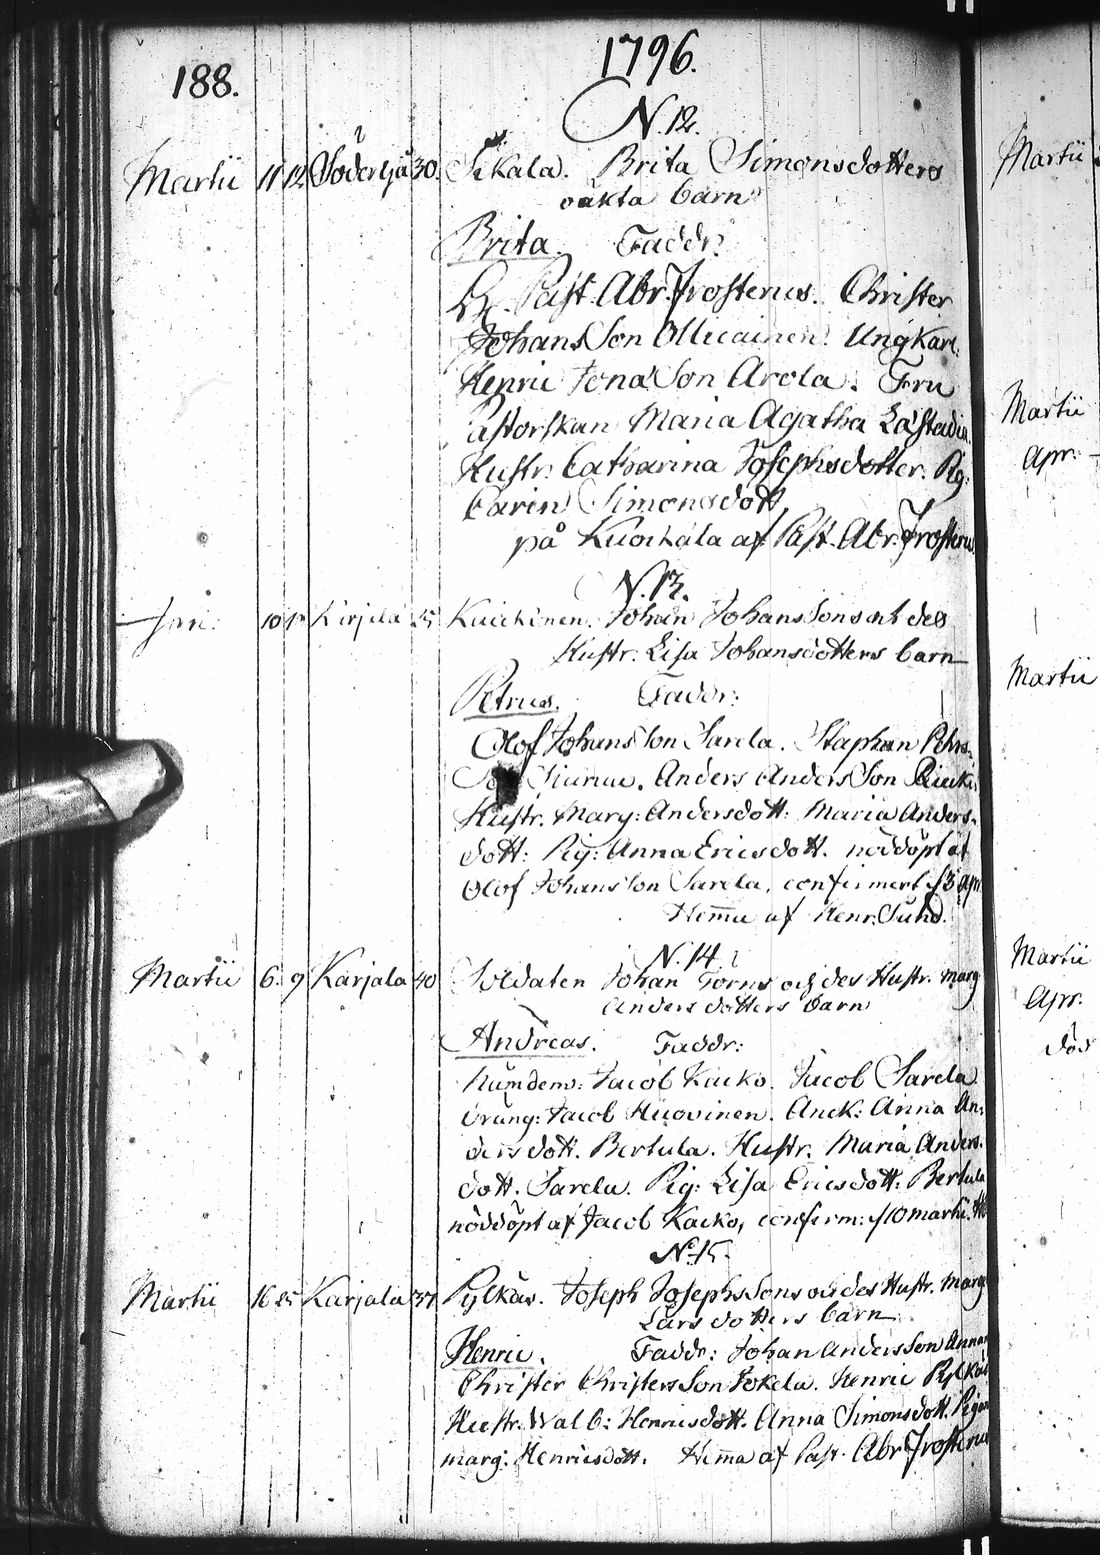 188.
1796.
N. 12.
Martii 11 12 Söderbjä 30. Sikala. Brita Simonsdotters
oäkta barn
Brita. Faddr:
H. Past. Abr. Frosterus. Christer
Johans Son Ollicainen. Ungkarl.
Henric Jona Son Arola. Fru
Pastorskan Maria Agatha Lästadia.
Hustr. Catharina Josephsdotter. Pig:
Carin Simonsdott
på Kuorkala af Past. Abr. Frosterus
N. 13.
10 Karjala 25 Johan Johans Sons och des
Hustr. Lisa Johansdotters barn
Petrus. Faddr:
Olof Johans Son Sarela. Staphan Pehrs-
Son Anders Anders Son
Hustr. Marg: Andersdott: Maria Anders-
dott: Pig: Anna Ericsdott. nöddöpt af
Olof Johans Son Sarela, confirmert
Hema af Henr. Sund.
N. 14
Martii 6. 9 Karjala 40 Soldaten Johan Torns och des Hustr. Marg
Andersdotters barn
Andreas. Faddr:
Nämdem: Jacob Kacko. Jacob Sarela
Drüng: Jacob Huovinen. Anck: Anna An-
dersdott. Bertula. Hustr. Maria Anders-
dott. Sarela. Pig: Lisa Ericsdott: Bertula
nöddöpt af Jacob Kacko, confirm: d. 10 martii.
N. 15.
Martii 16 25 Karjala 37. Pylkäs. Joseph Josephs Sons och des Hustr. Marg
Larsdotters barn
Henric. Faddr: Johan Anders Son
Christer Christers Son Jokela. Henric Pylkäs
Hustr. Walb: Henricsdott. Anna Simonsdott. Pigan
marg: Henricsdott. Hema af Past. Abr Frosterus
Martii
Martii
Apr:
Martii
Martii
Apr.
död